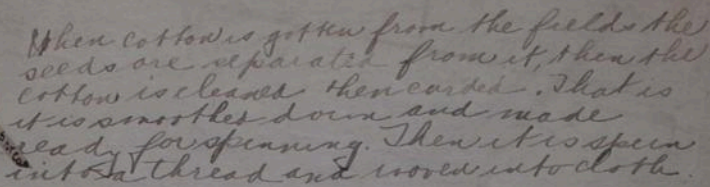 When cotton is gotten from the fields the
seeds are separated from it, then the
cotton is cleaned then carded. That is
it is smoothed down and made
ready for spinning. Then it is spun
into a thread and woved into cloth.